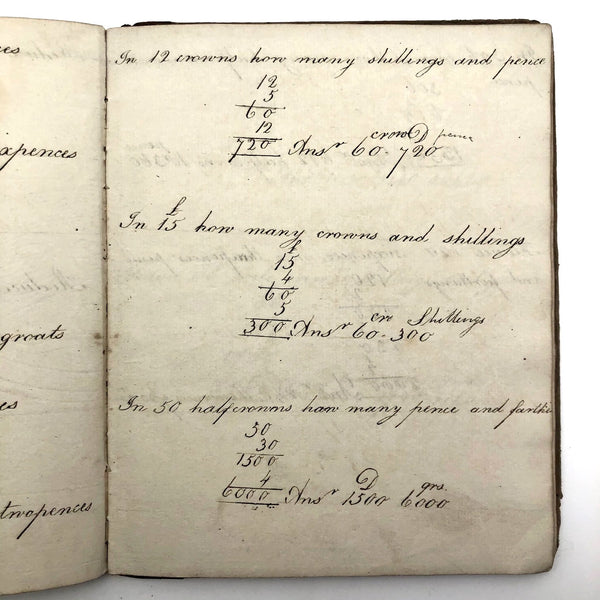 In 12 crowns how many shillings and pence
12
5
60
12
720 Ansr 60 crow 720 D pence
In £ 15 how many crowns and shillings
£
15
4
60
5
300 Ansr 60 cro 300 Shillings
In 50 halfcrowns how many pence and farthi
50
30
1500
4
6000 Ansr 1500 D 6000 qrs.
xpences
groats
twopences